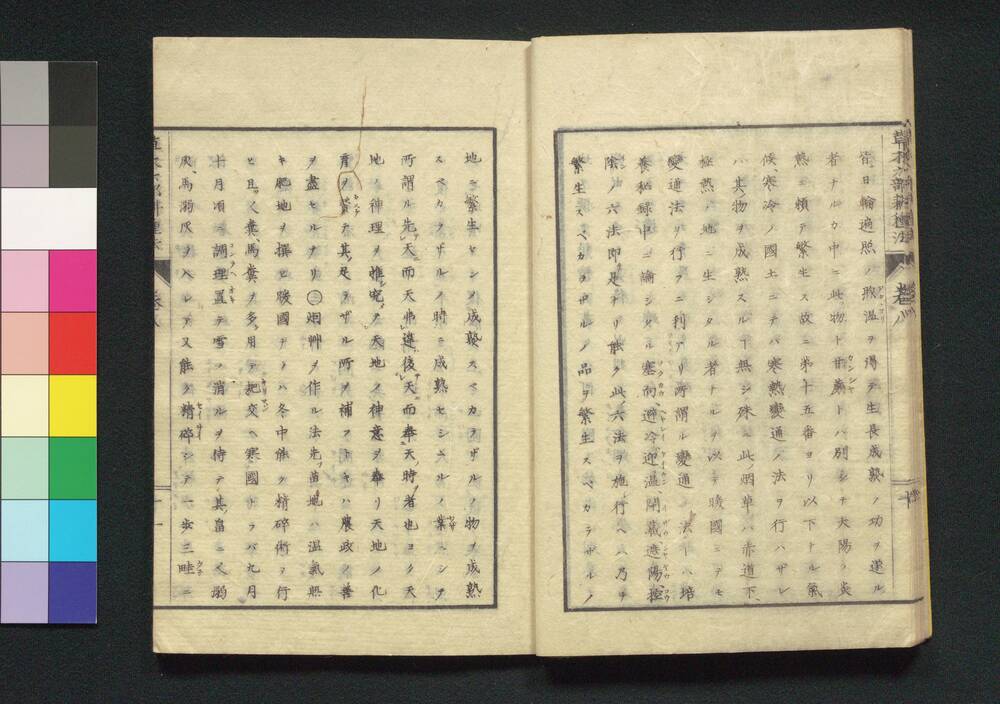 草木六部耕種法 巻八 十
皆日輪遍照ノ煦温ヲ得テ生長成熟ノ功ヲ遂ル
者ナルカ中ニ此物ト甘蔗トハ別シテ大陽ノ炎
熱ニ頼テ繁生ス故ニ第十五番ヨリ以下トル氣
候、寒冷ノ國土ニテハ寒熱變通ノ法ヲ行ハザレ
ハ其物ヲ成熟スルヿ無シ殊ニ此烟草ハ赤道下、
極熱ノ地ニ生シタル者ナルヲ以テ暖國ニテモ
變通法ヲ行フニ利アリ所謂ル變通ノ法トハ培
養秘録中ニ論シタル塞向、避冷迎温、開裁遮陽、控
陰ノ六法即是ナリ能ク此ノ六法ヲ施行ヘハ乃チ
繁生スベカラザルノ品ヲ繁生スベカラザルノ
地ニ繁生セシメ成熟スベカラザルノ物ヲ成熟
スベカラザルノ時ニ成熟セシムルノ業ニシテ
所謂ル先天而天弗違、後天而奉天時者也ヨク天
地ノ神理ヲ惟究テ天地ノ神意ヲ奉リ天地ノ化
育ヲ賛テ其足ラザル所ヲ補フトキハ農政ノ善
ヲ盡セルナリ㊂烟艸ヲ作ル法先ツ苗地ハ温氣照
キ肥地ヲ撰ヒ暖國ナラハ冬中能ク精碎術ヲ行
ヒ且ツ人糞、馬糞ヲ多ク用テ杷交ヘ寒國ナラバ九月
十月頃ニ調理置テ雪ノ消ルヲ待テ其畠ニ人溺
灰、馬溺灰ヲハレテ又能ク精碎シテ一歩三畦ニ
巻八 十一